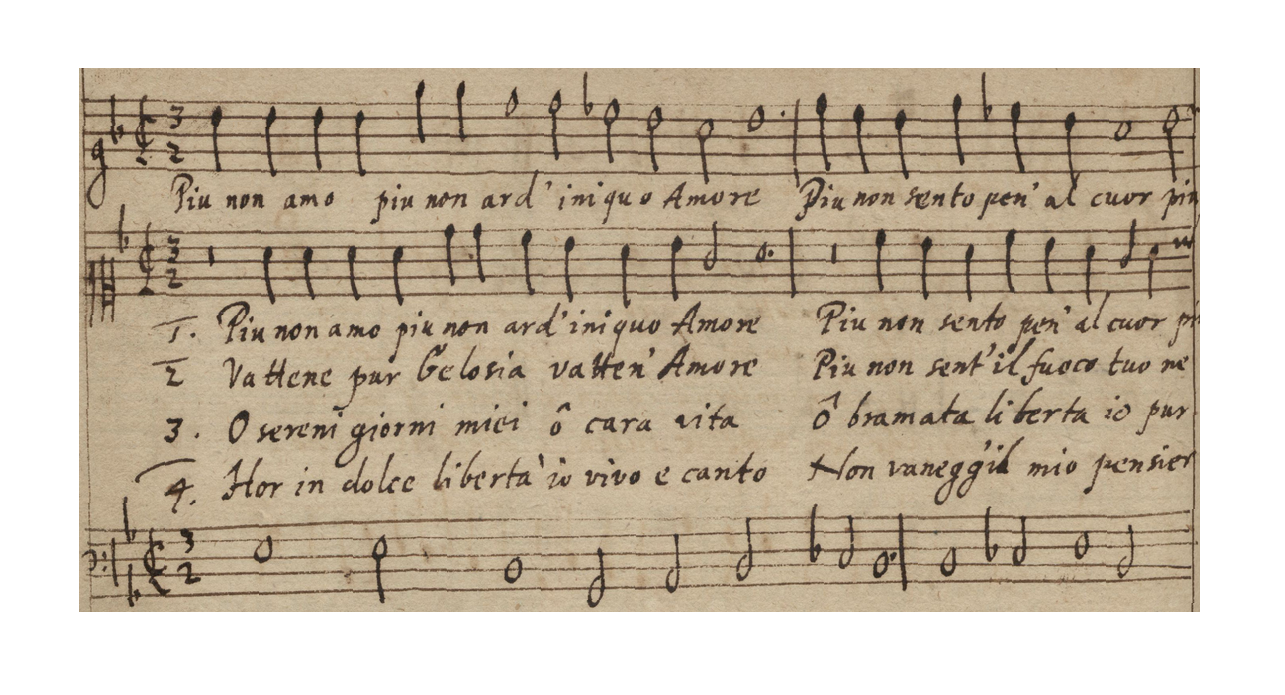 3
2
Piu non amo piu non ard' iniquo Amore Piu non sento pen' al cuor piu
3
2
1. Piu non amo piu non ard' iniquo Amore Piu non sento pen' al cuor
2 Vattene pur Gelosia vatten' Amore Piu non sent' il fuoco tuo ne
3. O sereni giorni miei ô cara vita ô bramata liberta io pur
4. Hor in dolce liberta io vivo e canto Non vanegg' il mio pensier
3
2